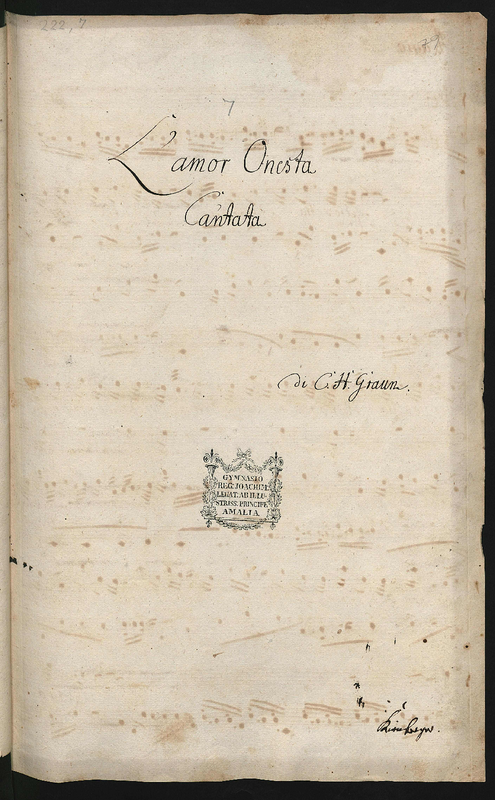 222,7
79
7
L'amor Onesta
Cantata
di C. H. Graun.
GYMNASIO
REG. JOACHIM.
LEGAT. AB ILLU-
STRISS. PRINCIPE
AMALIA
Kirnberger.